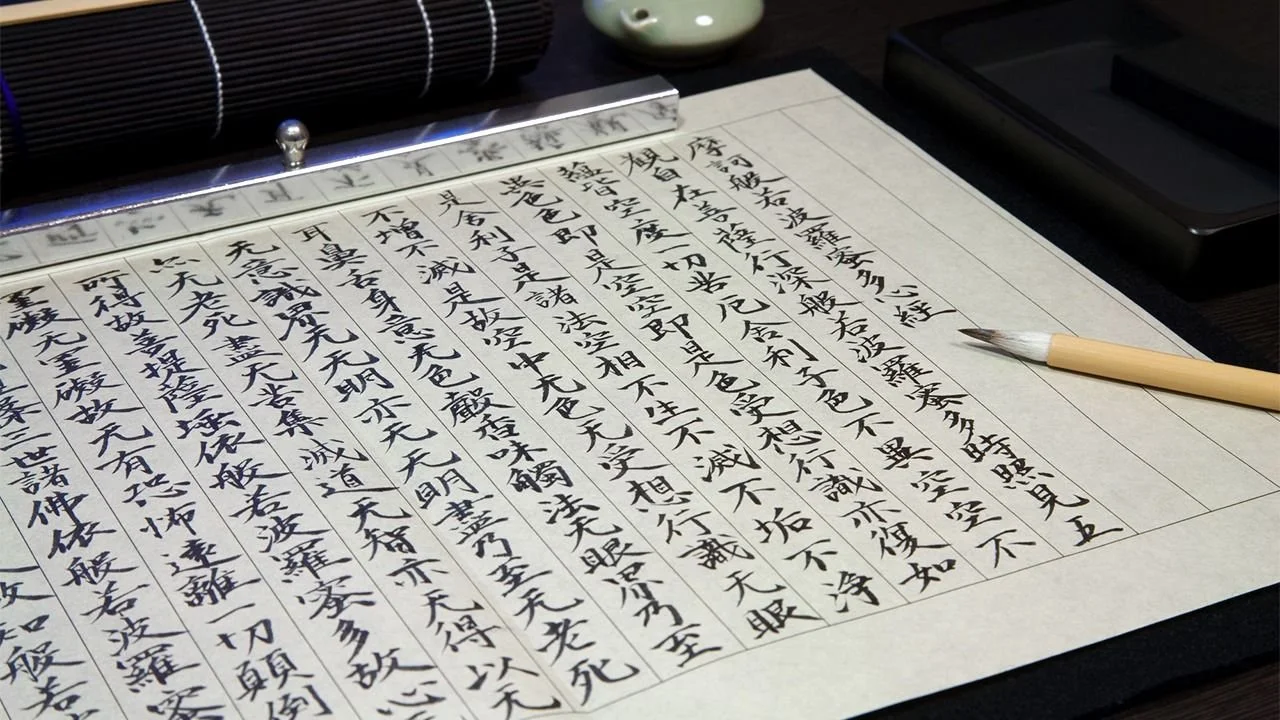 摩訶般若波羅蜜多心經
観自在菩薩行深般若波羅蜜多時照見五
蘊皆空度一切苦厄舎利子色不異空空不
異色色即是空空即是色受想行識亦復如
是舎利子是諸法空相不生不滅不垢不浄
不增不減是故空中无色无受想行識无眼
耳鼻舌身意无色聲香味觸法无眼界乃至
无意識界无无明亦无无明盡乃至无老死
亦无老死盡无苦集滅道无智亦无得以无
所得故菩提薩埵依般若波羅蜜多故心
罣礙无罣礙故无有恐怖遠離一切顛倒
槃三世諸佛依般若波羅蜜
故知般若